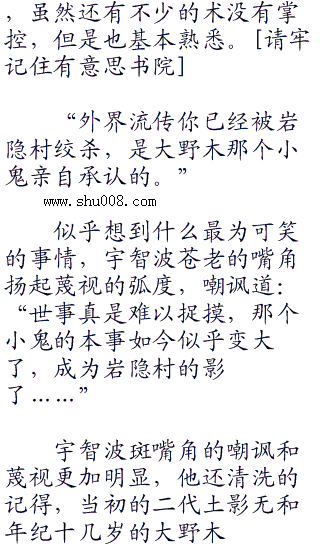 ，虽然还有不少的术没有掌
控，但是也基本熟悉。[请牢
记住有意思书院]
“外界流传你已经被岩
隐村绞杀，是大野木那个小
鬼亲自承认的。”
www.shu008.com
似乎想到什么最为可笑
的事情，宇智波苍老的嘴角
扬起蔑视的弧度，嘲讽道：
“世事真是难以捉摸，那个
小鬼的本事如今似乎变大
了，成为岩隐村的影
了……”
宇智波斑嘴角的嘲讽和
蔑视更加明显，他还清洗的
记得，当初的二代土影无和
年纪十几岁的大野木